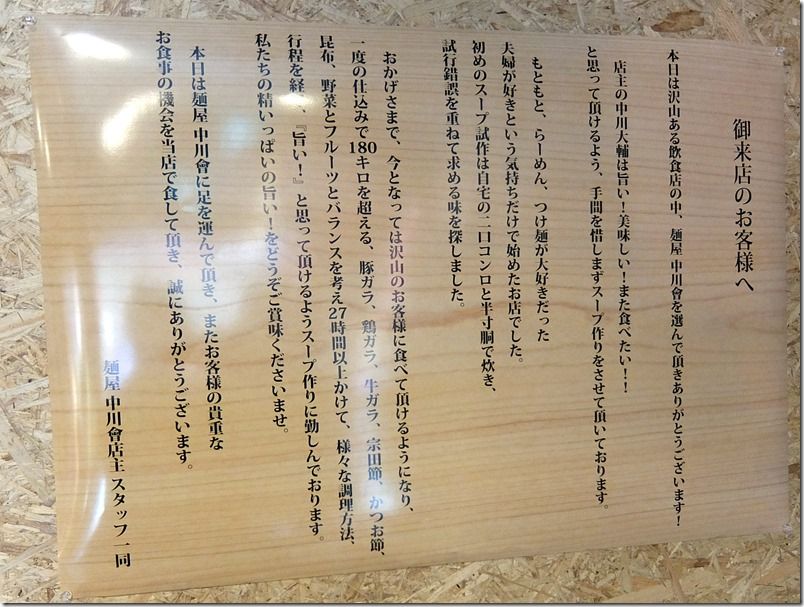 御来店のお客様へ
本日は沢山ある飲食店の中、麺屋 中川會を選んで頂きありがとうございます!
店主の中川大輔は旨い!美味しい!また食べたい!!
と思って頂けるよう、手間を惜しまずスープ作りをさせて頂いております。
もともと、らーめん、つけ麺が大好きだった
夫婦が好きという気持ちだけで始めたお店でした。
初めのスープ試作は自宅の二口コンロと半寸胴で炊き、
試行錯誤を重ねて求める味を探しました。
おかげさまで、今となっては沢山のお客様に食べて頂けるようになり、
一度の仕込みで180キロを超える、豚ガラ、鶏ガラ、牛ガラ、宗田節、かつお節、
昆布、野菜とフルーツとバランスを考え27時間以上かけて、様々な調理方法、
行程を経、『旨い!』と思って頂けるようスープ作りに勤しんでおります。
私たちの精いっぱいの旨い!をどうぞご賞味くださいませ。
本日は麺屋 中川會に足を運んで頂き、またお客様の貴重な
お食事の機会を当店で食して頂き、誠にありがとうございます。
麺屋 中川會店主 スタッフ一同